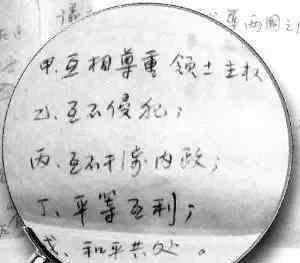 甲.互相尊重领土主权
乙、互不侵犯；
丙、互不干涉内政；
丁、平等互利；
戊、和平共处。
两国之